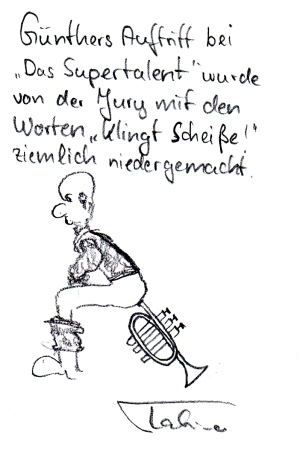 Günthers Auftritt bei
„Das Supertalent" wurde
von der Jury mit den
Worten „Klingt Scheiße!"
ziemlich niedergemacht.